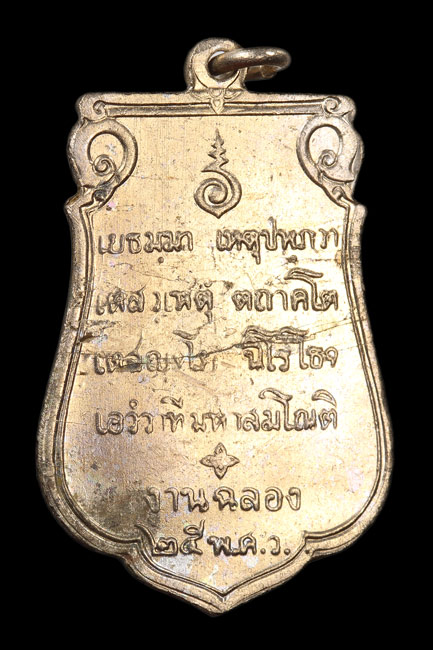 เยธมฺมา เหตุปฺปภาวา
เตสํ เหตุํ ตถาคโต
เตสญฺจโย นิโรโธจ
เอวํวาที มหาสมโณติ
งานฉลอง
๒๕ พ.ศ.ว.